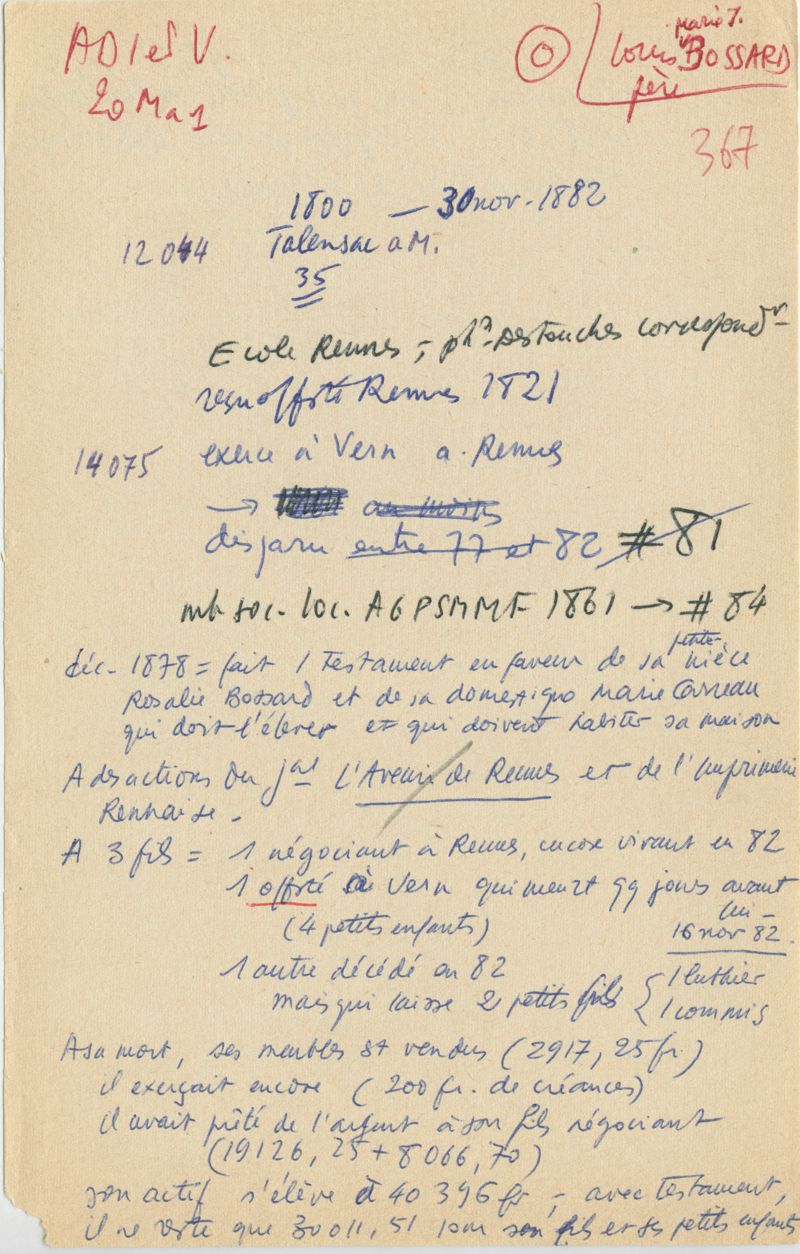 AD I et V.
20 Ma 1
O
Marie J.
Louis BOSSARD
père
367
1800 — 30 nov. 1882
12044 Talensac a M.
35
Ecole Rennes; phn Destouches correspondr
reçu offté Rennes 1821
14075 exerce à Vern a. Rennes
→ au moins
disparu entre 77 et 82 # 81
mb soc. loc. AGPSMMF 1861 → # 84
déc. 1878 = fait 1 testament en faveur de sa petite nièce
Rosalie Bossard et de sa domestique Marie
qui doit l'élever et qui doivent habiter sa maison
A des actions du jal L'Avenir de Rennes et de l'Imprimerie
Rennaise.
A 3 fils = 1 négociant à Rennes, encore vivant en 82
1 offté à Vern qui meurt 99 jours avant
lui –
(4 petits enfants) 16 nov 82.
1 autre décédé en 82
mais qui laisse 2 petits fils { 1 luthier
1 commis
A sa mort, ses meubles st vendus (2917,25 fr.)
il exerçait encore (200 fr. de créances)
il avait prêté de l'argent à son fils négociant
(19126,25 + 8066,70)
son actif s'élève à 40 396 fr, – avec testament,
il ne reste que 30011,51 pour son fils et ses petits enfants